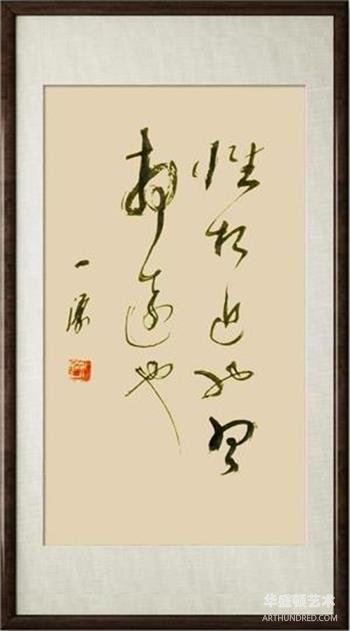 性相近也習
相遠也
一
华盛顿艺术
ARTHUNDRED.COM